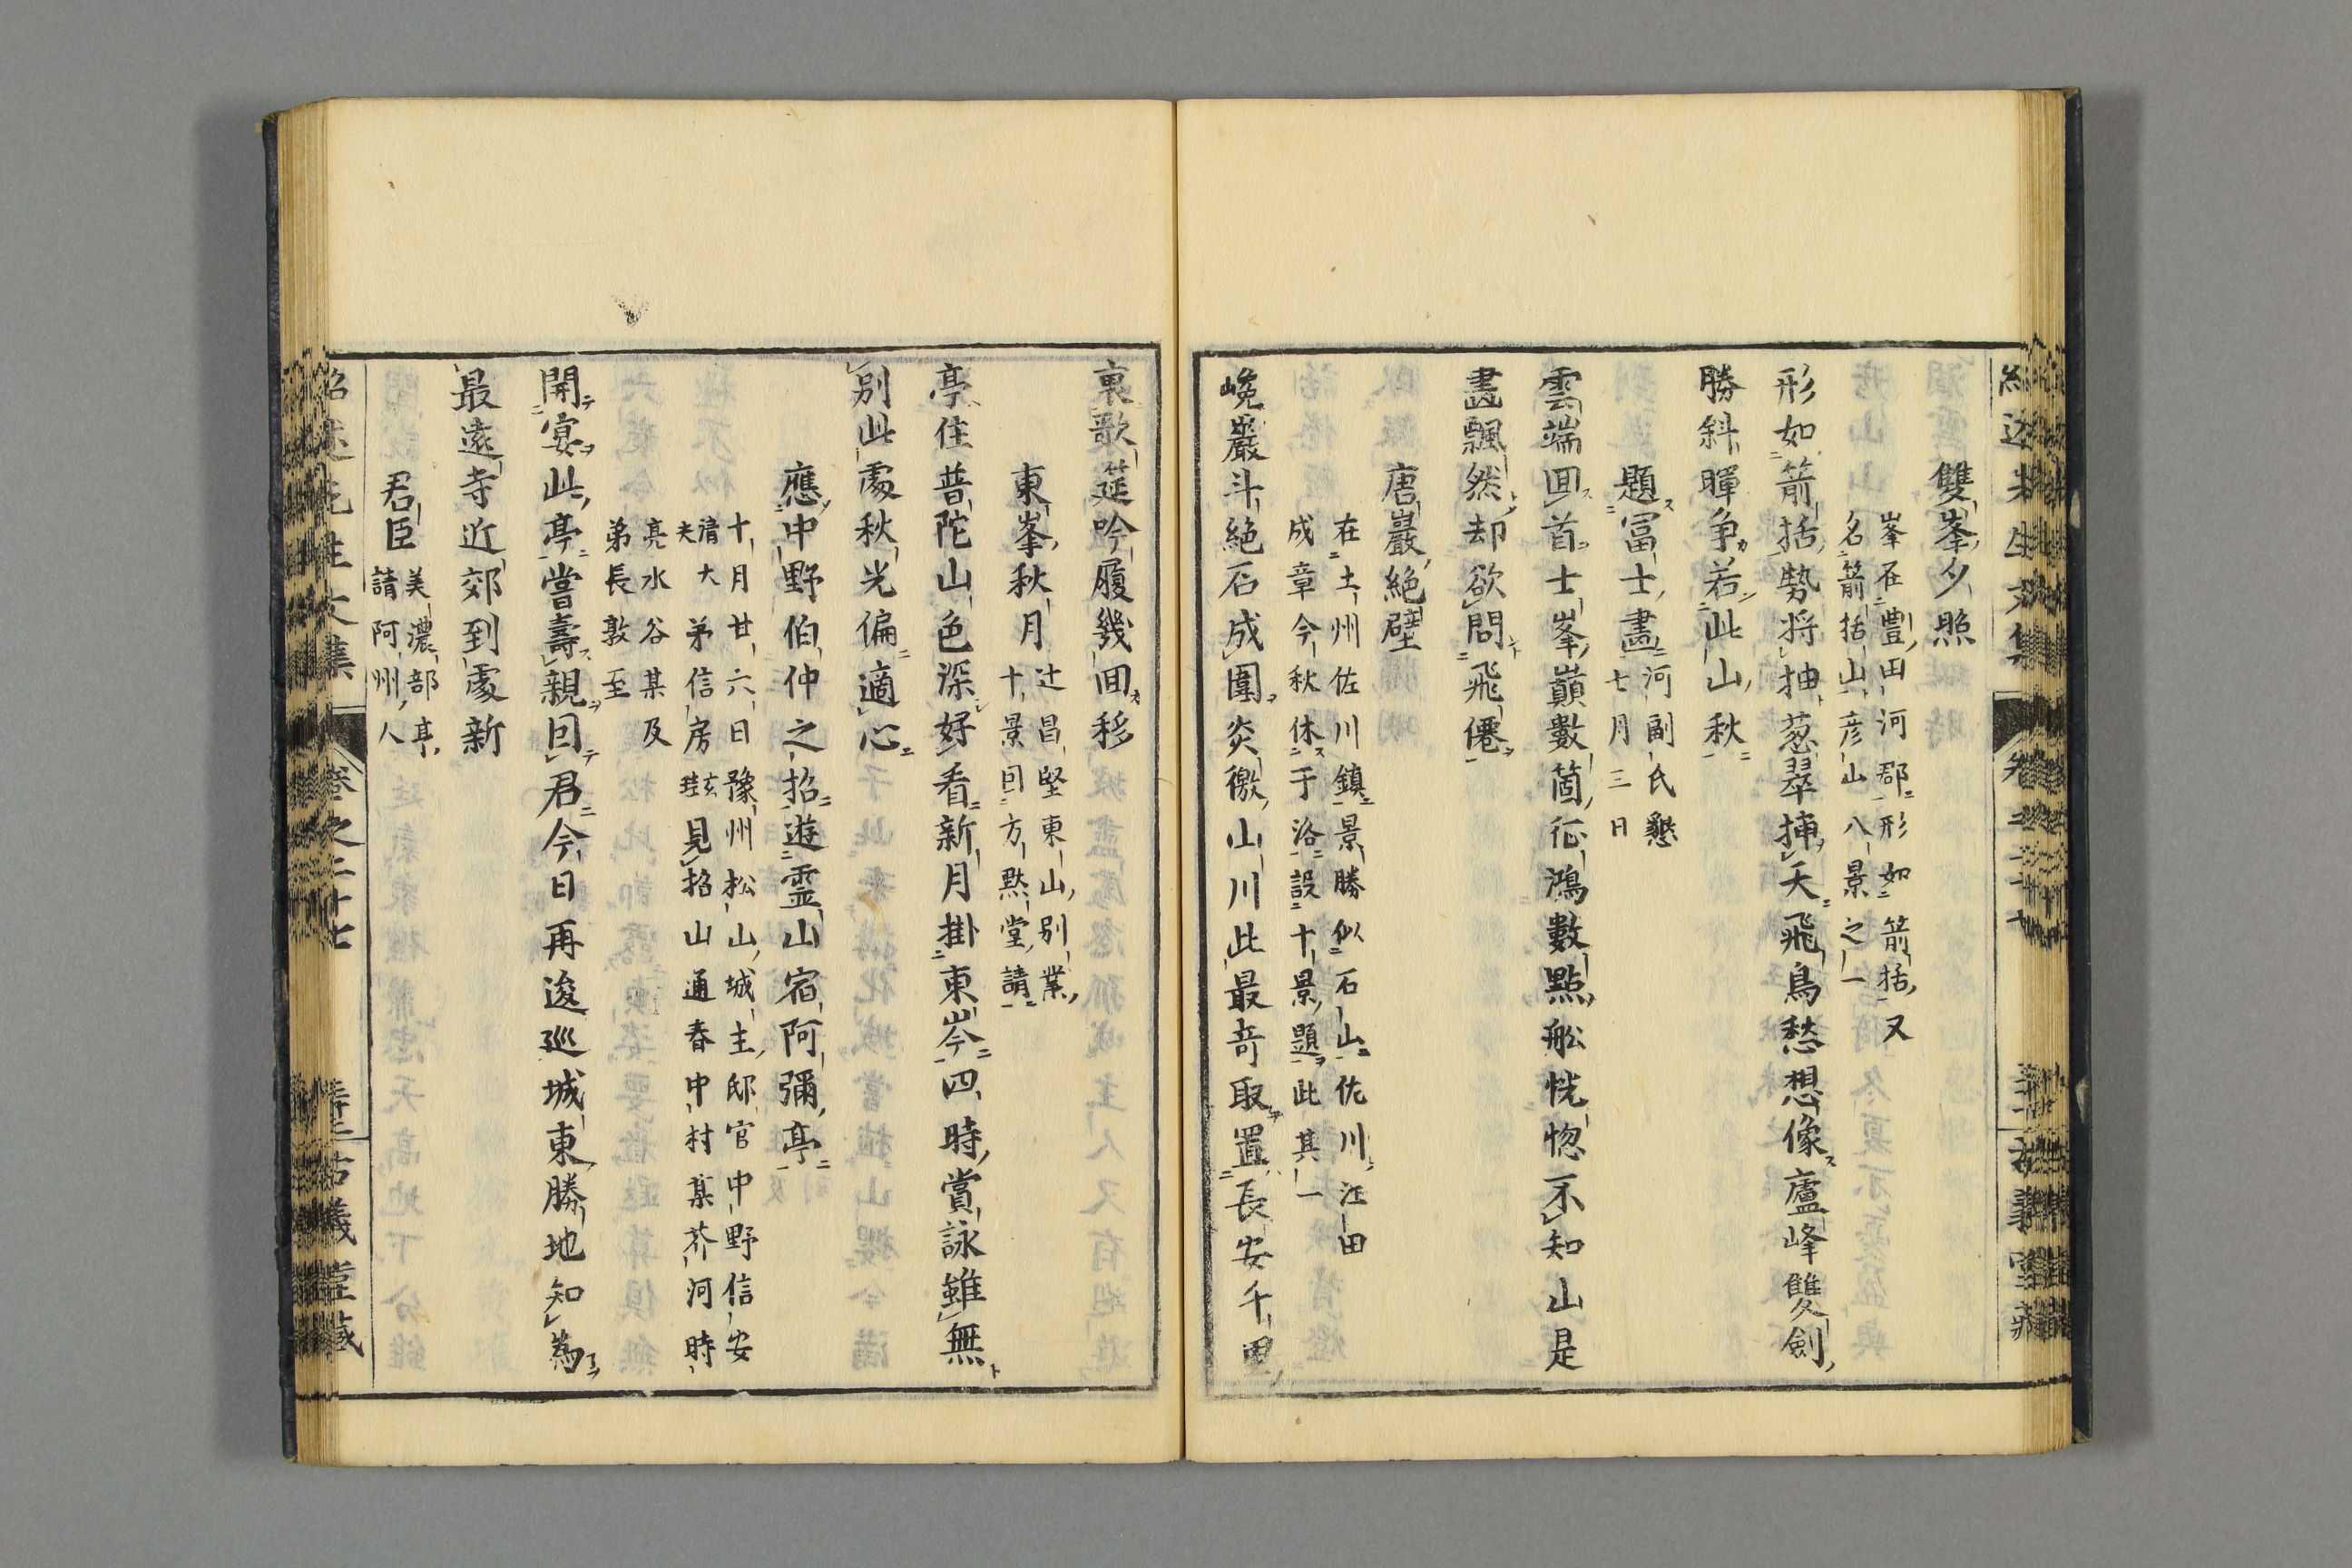 雙峯夕照
峯在豐田河郡形如箭括又
名箭括山彦山八景之一
形如箭括勢將抽葱翠挿天飛鳥愁想像廬峰雙劍
勝斜暉争若此山秋
題富士畫
河副氏懇
七月三日
雲端囬首士峯巔數箇征鴻數點舩恍惚不知山是
畫飄然却欲問飛僊
唐巖絶壁
在土州佐川鎮景勝似石山佐川江田
成章今秋休于洛設十景題此其一
巉巖斗絶石成圍炎徼山川此最竒取置長安千里
裏歌筵吟履幾囬移
東峯秋月
辻昌堅東山別業
十景囙方黙堂請
亭住普陀山色深好看新月掛東岑四時賞詠雖無
別此處秋光偏適心
應中野伯仲之招遊霊山宿阿彌亭
十月廿六日豫州松山城主邸官中野信安
清大夫弟信房玹見招山通春中村某芥河時
亮水谷某及
弟長敦至
開宴此亭嘗壽親囙君今日再逡巡城東勝地知爲
最遠寺近郊到處新
君臣
美濃部亭
請阿州人
紹述先生文集
卷之二十七
古義堂藏